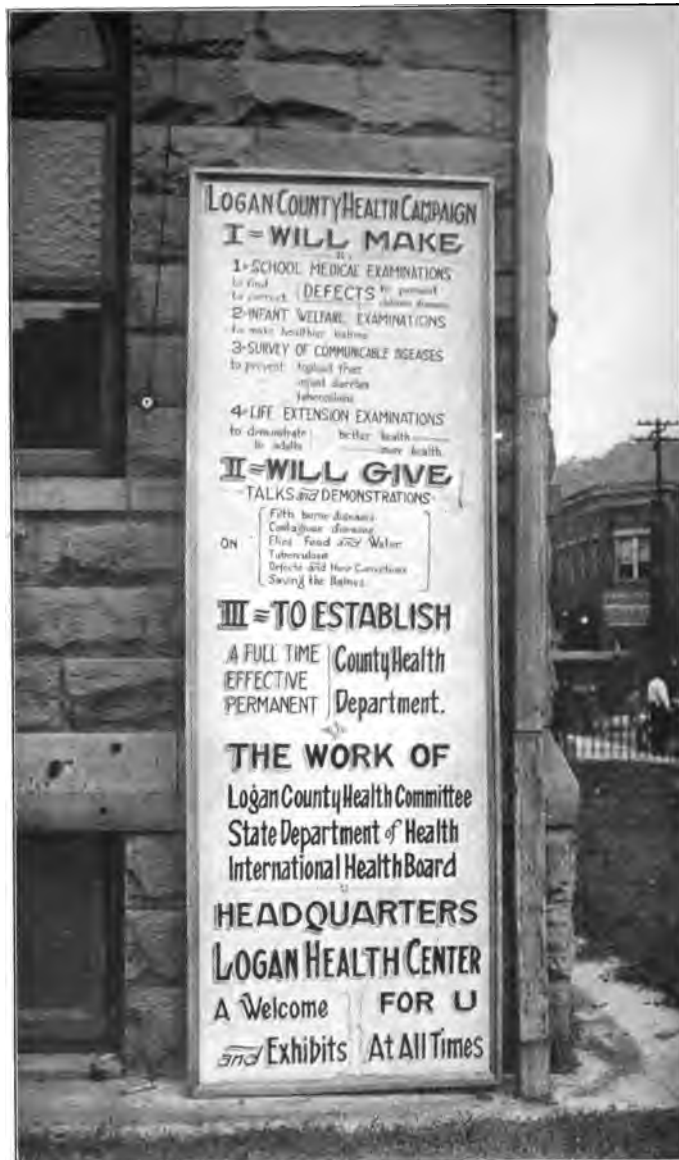 LOGAN COUNTY HEALTH CAMPAIGN
I = WILL MAKE
1-SCHOOL MEDICAL EXAMINATIONS
to find DEFECTS to prevent
to correct
2-INFANT WELFARE EXAMINATIONS
to make healthier babies
3-SURVEY OF COMMUNICABLE DISEASES
to prevent typhoid fever
tuberculosis
4-LIFE EXTENSION EXAMINATIONS
to demonstrate better health
to adults more health
II = WILL GIVE
TALKS and DEMONSTRATIONS
Filth borne diseases
Contagious diseases
ON Flies Food and Water
Tuberculosis
Defects and their Corrections
Saving the Babies
III = TO ESTABLISH
A FULL TIME County Health
EFFECTIVE
PERMANENT Department.
THE WORK OF
Logan County Health Committee
State Department of Health
International Health Board
HEADQUARTERS
LOGAN HEALTH CENTER
A Welcome FOR U
and Exhibits At All Times